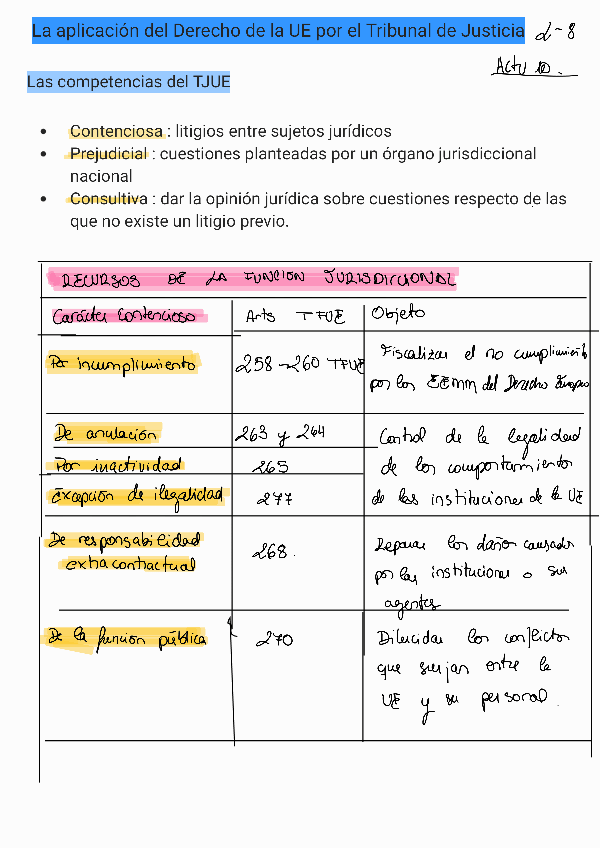 La aplicación del Derecho de la UE por el Tribunal de Justicia
Las competencias del TJUE
• Contenciosa : litigios entre sujetos jurídicos
• Prejudicial : cuestiones planteadas por un órgano jurisdiccional
nacional
• Consultiva : dar la opinión jurídica sobre cuestiones respecto de las
que no existe un litigio previo.
RECURSOS DE LA FUNCION JURISDICCIONAL
Carácter Contencioso
Arts TFUE
Objeto
Por incumplimiento
258-260 TFUE
Fiscalizar el no cumplimiento
por los EEMM del Derecho Europeo
De anulación
263 y 264
Por inactividad
265
Excepción de ilegalidad
277
Control de la legalidad
de los comportamientos
de las instituciones de la UE
De responsabilidad
extracontractual
268.
Reparar los daños causados
por las instituciones o sus
agentes
De la función pública
270
Dilucidar los conflictos
que surjan entre la
UE y su personal.